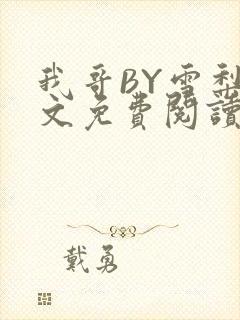 我哥BY雪梨
文免费阅读
戴勇